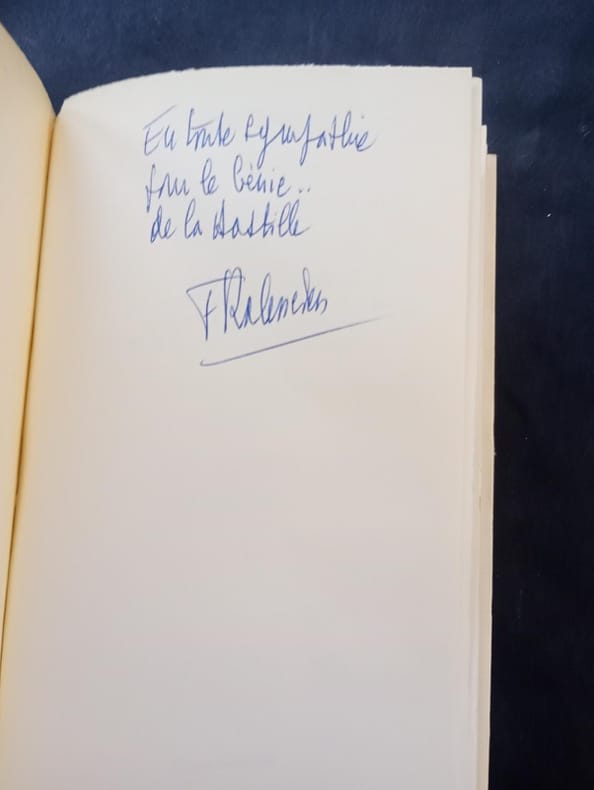 En toute sympathie
pour le Génie..
de la Bastille